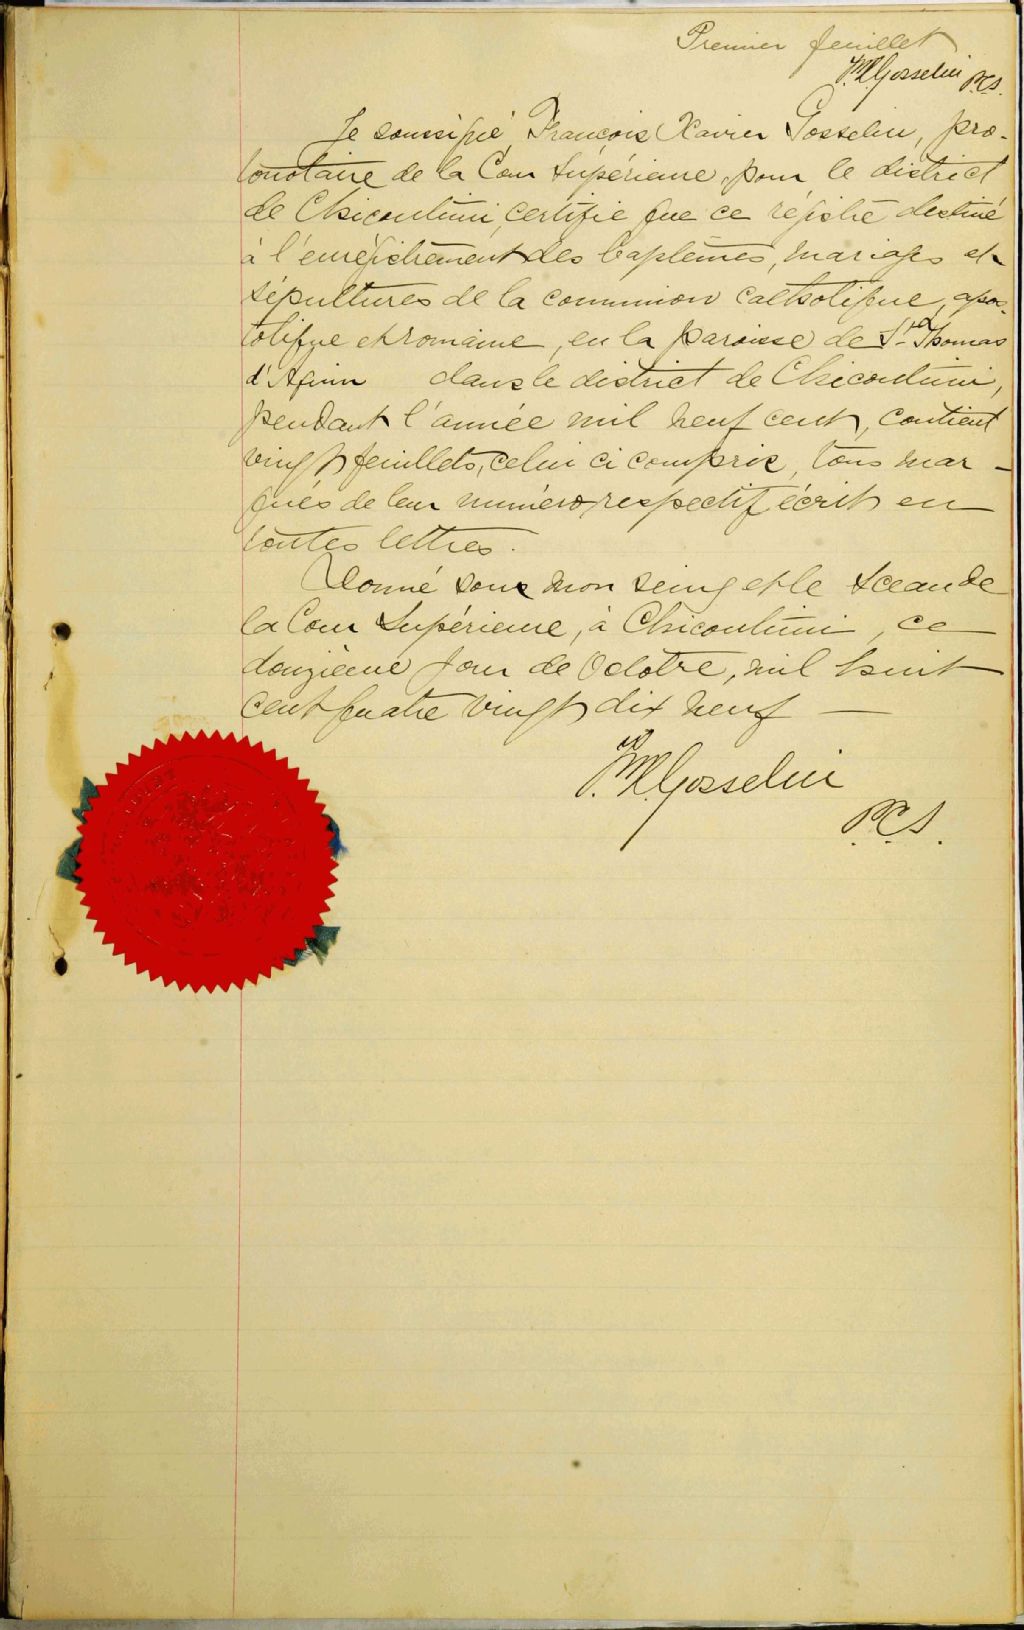 Premier feuillet
F.X. Gosselin P.C.S.
Je soussigné François Xavier Gosselin, pro-
tonotaire de la Cour Supérieure, pour le district
de Chicoutimi, certifie que ce régistre destiné
à l'enrégistrement des baptêmes, mariages et
sépultures de la communion catholique, apos-
tolique et romaine, en la paroisse de St Thomas
d'Aquin dans le district de Chicoutimi,
pendant l'année mil neuf cent, contient
vingt feuillets, celui ci compris, tous mar-
qués de leur numéro respectif écrit en
toutes lettres.
Donné sous mon seing et le sceau de
la Cour Supérieure, à Chicoutimi, ce
douzième jour de Octobre, mil huit
cent quatre vingt dix neuf —
F.X. Gosselin
P.C.S.